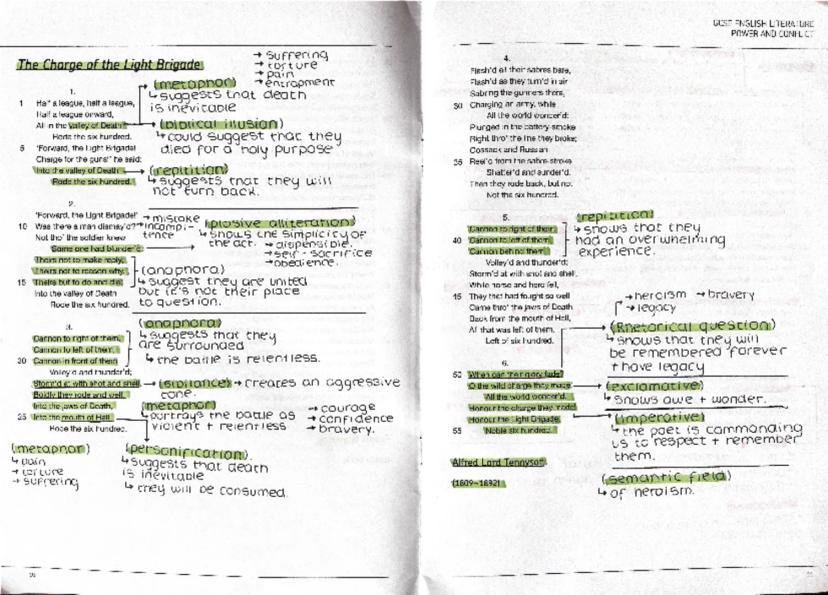 GCSE ENGLISH LITERATURE
POWER AND CONFLICT
The Charge of the Light Brigade
→ suffering
→ torture
→ pain
→ entrapment
(metaphor)
↳ suggests that death
is inevitable
1.
1 Half a league, half a league,
Half a league onward,
All in the valley of Death
Rode the six hundred.
5 'Forward, the Light Brigade!
Charge for the guns!' he said:
Into the valley of Death
Rode the six hundred.
(biblical illusion)
↳ could suggest that they
died for a 'holy purpose'
(repitition)
↳ suggests that they will
not turn back.
2.
'Forward, the Light Brigade!'
10 Was there a man dismay'd?
Not tho' the soldier knew
Some one had blunder'd:
Theirs not to make reply,
Theirs not to reason why,
15 Theirs but to do and die:
Into the valley of Death
Rode the six hundred.
→ mistake
→ incompi-
tence
(plosive alliteration)
↳ shows the simplicity of
the act.
→ dispensible.
→ self-sacrifice
→ obedience.
(anaphora)
↳ suggest they are united
but it's not their place
to question.
3.
Cannon to right of them,
Cannon to left of them,
20 Cannon in front of them
Volley'd and thunder'd;
Storm'd at with shot and shell,
Boldly they rode and well,
Into the jaws of Death,
25 Into the mouth of Hell
Rode the six hundred.
(anaphora)
↳ suggests that they
are surrounded
↳ the battle is relentless.
(sibilance) → creates an aggressive
tone.
(metaphor)
↳ portrays the battle as
violent + relentless
→ courage
→ confidence
→ bravery.
(metaphor)
→ pain
→ torture
→ suffering
(personification).
↳ suggests that death
is inevitable
↳ they will be consumed.
4.
Flash'd all their sabres bare,
Flash'd as they turn'd in air
Sabring the gunners there,
30 Charging an army, while
All the world wonder'd:
Plunged in the battery-smoke
Right thro' the line they broke;
Cossack and Russian
35 Reel'd from the sabre-stroke
Shatter'd and sunder'd.
Then they rode back, but not
Not the six hundred.
5.
Cannon to right of them,
40 Cannon to left of them,
Cannon behind them
Volley'd and thunder'd;
Storm'd at with shot and shell,
While horse and hero fell,
45 They that had fought so well
Came thro' the jaws of Death
Back from the mouth of Hell,
All that was left of them,
Left of six hundred.
(repitition)
↳ shows that they
had an overwhelming
experience.
→ heroism → bravery
→ legacy
6.
50 When can their glory fade?
O the wild charge they made!
All the world wonder'd.
Honour the charge they made!
Honour the Light Brigade,
55 Noble six hundred.
(Rhetorical question)
↳ shows that they will
be remembered forever
+ have legacy
(exclamative)
↳ shows awe + wonder.
(imperative)
↳ the poet is commanding
us to respect + remember
them.
Alfred Lord Tennyson
(1809–1892)
(semantic field)
↳ of heroism.